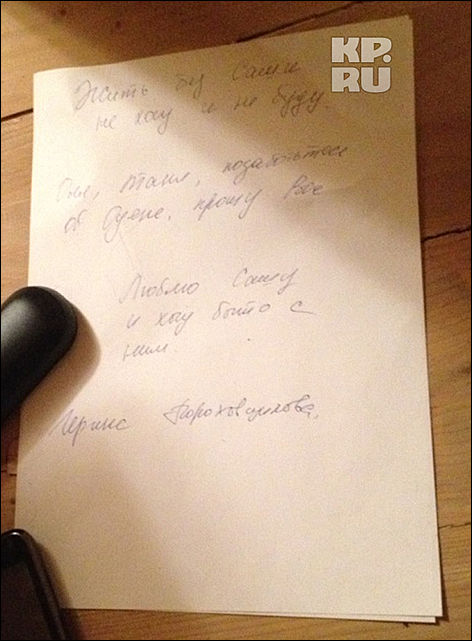 KP.
RU
Жить без Саши
не хочу и не буду.
Оля, Таня, позаботьтесь
об
прошу Вас
Люблю Сашу
и хочу быть с
ним.
Ирина Пороховщикова.